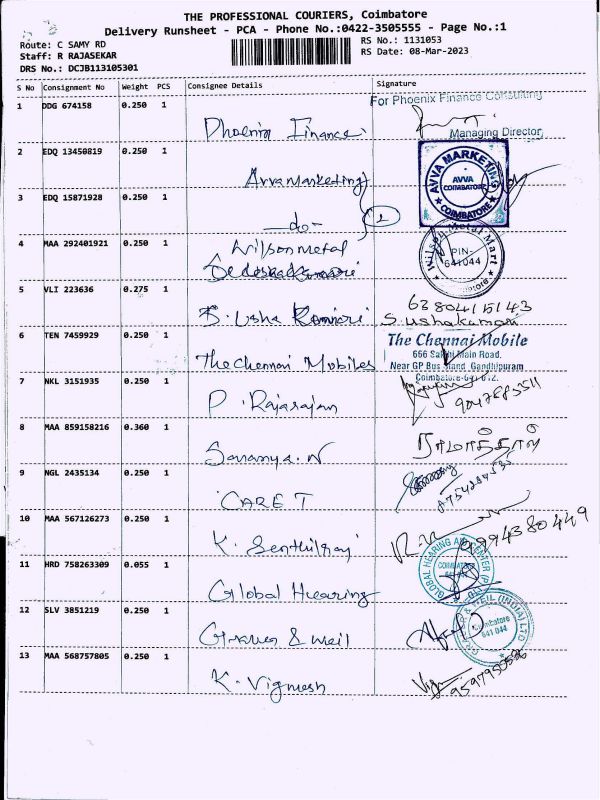 THE PROFESSIONAL COURIERS, Coimbatore
Delivery Runsheet - PCA - Phone No.:0422-3505555 - Page No.:1
Route: C SAMY RD
RS No.: 1131053
Staff: R RAJASEKAR
RS Date: 08-Mar-2023
DRS No.: DCJB113105301
S No Consignment No Weight PCS Consignee Details Signature
1 DDG 674158 0.250 1 Phoenix Finance
For Phoenix Finance Consulting
Managing Director
2 EDQ 13450819 0.250 1 Avva Marketing
AVVA MARKETING
AVVA
COIMBATORE
COIMBATORE
3 EDQ 15871928 0.250 1 -do- 2
4 MAA 292401921 0.250 1 Wilson metal
Wilson Metal Mart
PIN-
641044
5 VLI 223636 0.275 1 B. Usha Kumari
63804
S. ushakumari
6 TEN 7459929 0.250 1 The Chennai Mobiles
The Chennai Mobile
666 Sathi Main Road,
Near GP Bus Stand, Gandhipuram
Coimbatore-641 012.
7 NKL 3151935 0.250 1 P. Rajarajan
8 MAA 859158216 0.360 1 Saranya. N
9 NGL 2435134 0.250 1 CARE T
10 MAA 567126273 0.250 1 K. Senthilraj
9994380449
11 HRD 758263309 0.055 1 Global Hearing
GLOBAL HEARING AID CENTER (P)
COIMBATORE
12 SLV 3851219 0.250 1 Graver & Weil
& WEIL (INDIA) LTD
Coimbatore
641 044
13 MAA 568757805 0.250 1 K. Vignesh
9597950586